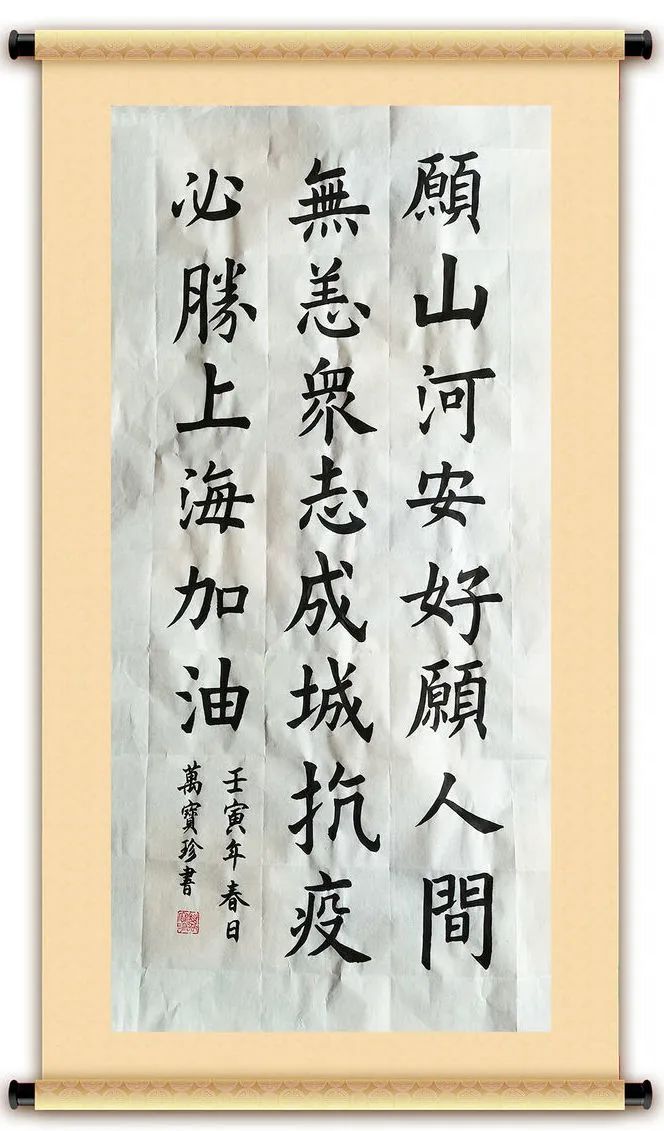 願山河安好願人間
無恙衆志成城抗疫
必勝上海加油
壬寅年春日
萬寶珍書